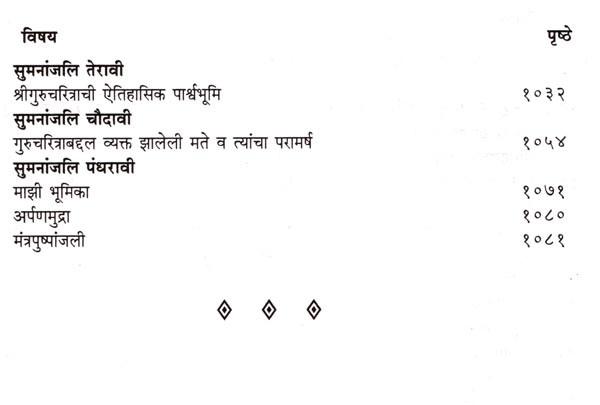 विषय पृष्ठे
सुमनांजलि तेरावी
श्रीगुरुचरित्राची ऐतिहासिक पार्श्वभूमि १०३२
सुमनांजलि चौदावी
गुरुचरित्राबद्दल व्यक्त झालेली मते व त्यांचा परामर्ष १०५४
सुमनांजलि पंधरावी
माझी भूमिका १०७१
अर्पणमुद्रा १०८०
मंत्रपुष्पांजली १०८१